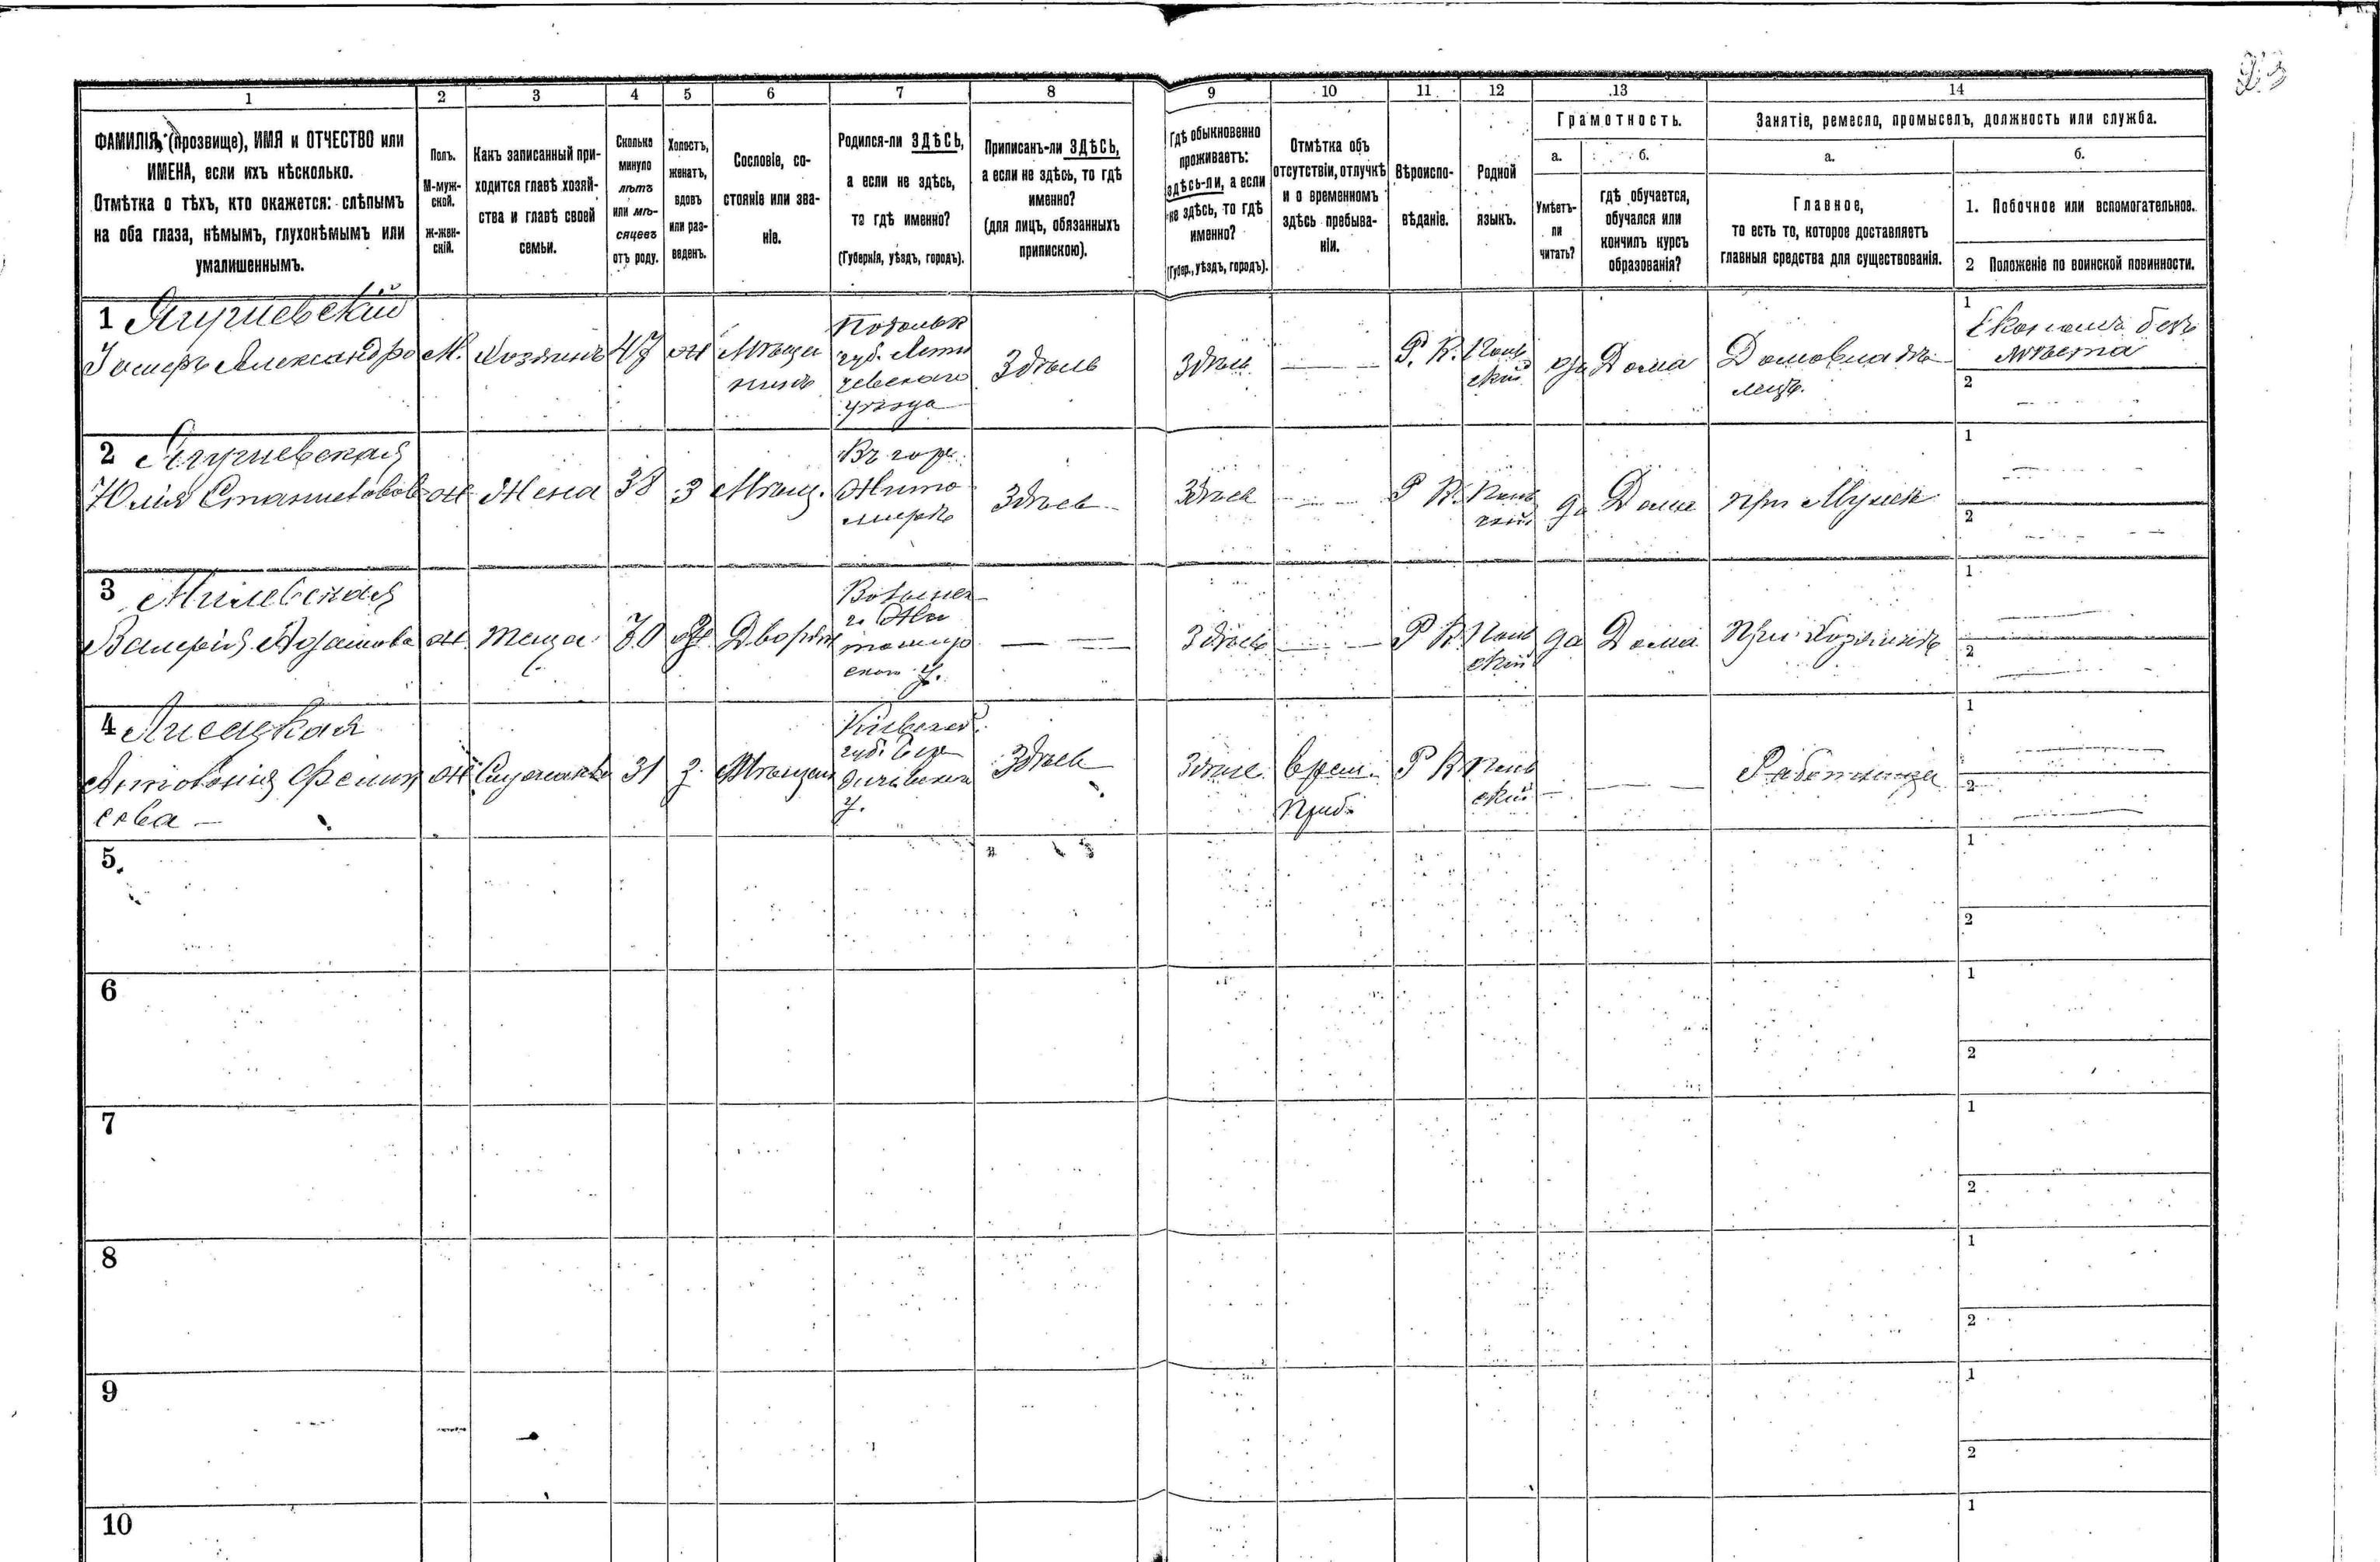 1 2 3 4 5 6 7 8 9 10 11 12 13 14
ФАМИЛІЯ, (прозвище), ИМЯ и ОТЧЕСТВО или
ИМЕНА, если ихъ нѣсколько.
Отмѣтка о тѣхъ, кто окажется: слѣпымъ
на оба глаза, нѣмымъ, глухонѣмымъ или
умалишеннымъ.
Полъ.
М-муж-
ской.
ж-жен-
скій.
Какъ записанный при-
ходится главѣ хозяй-
ства и главѣ своей
семьи.
Сколько
минуло
лѣтъ
или мѣ-
сяцевъ
отъ роду.
Холостъ,
женатъ,
вдовъ
или раз-
веденъ.
Сословіе, со-
стояніе или зва-
ніе.
Родился-ли ЗДѢСЬ,
а если не здѣсь,
то гдѣ именно?
(Губернія, уѣздъ, городъ).
Приписанъ-ли ЗДѢСЬ,
а если не здѣсь, то гдѣ
именно?
(для лицъ, обязанныхъ
припискою).
Гдѣ обыкновенно
проживаетъ:
здѣсь-ли, а если
не здѣсь, то гдѣ
именно?
(Губер., уѣздъ, городъ).
Отмѣтка объ
отсутствіи, отлучкѣ
и о временномъ
здѣсь пребыва-
ніи.
Вѣроиспо-
вѣданіе.
Родной
языкъ.
Грамотность.
а.
Умѣетъ-
ли
читать?
б.
гдѣ обучается,
обучался или
кончилъ курсъ
образованія?
Занятіе, ремесло, промыселъ, должность или служба.
а.
Главное,
то есть то, которое доставляетъ
главныя средства для существованія.
б.
1. Побочное или вспомогательное.
2 Положеніе по воинской повинности.
1
Александро
М.
Хозяинъ
47
ж
Мѣща
нинъ
Подольск
губ. Лети
чевского
уѣзда
Здѣсь
Здѣсь
Р. К.
Поль
скій
да
Дома
Домовладѣ
лецъ.
1
Економъ безъ
мѣста
2
2
Юлія Станиславов
ж
Жена
38
З
Мѣщ.
Въ гор.
Жито
мирѣ
Здѣсь
Здѣсь
Р К.
Поль
скій
да
Дома
при Мужѣ
1
2
3 Милевская
Валерія Адамова
ж
теща
70
Дворян
Волынск
г. Жи
томир
ского у.
Здѣсь
Р К
Поль
скій
да
Дома
При Хозяинѣ
1
2
4 Лисецкая
Антовонія Феликс
ева
ж
31
З.
Мѣщан
Кіевской
губ. Бер
дичевского
у.
Здѣсь
Здѣсь
врем.
Приб.
Р К
Поль
скій
Работница
1
2
5
1
2
6
1
2
7
1
2
8
1
2
9
1
2
10
1